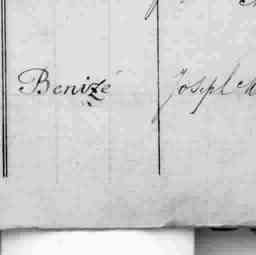 Benizé Joseph M